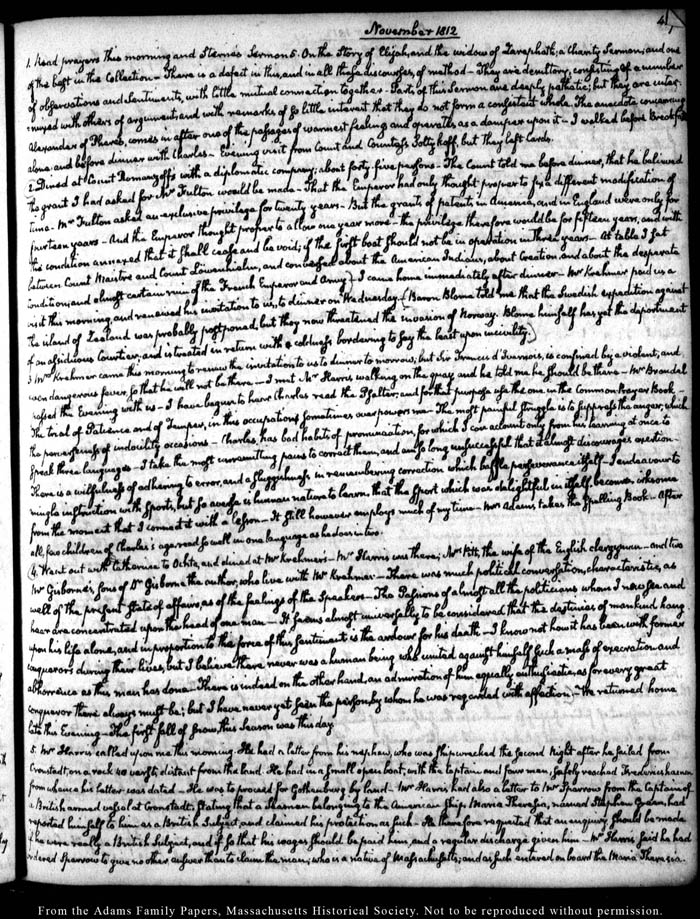 November 1812
41
1. Read prayers this morning and Sterne's Sermon 5. On the Story of Elijah, and the widow of Zarephath; a Charity Sermon; and one
of the best in the Collection — There is a defect in this, and in all these discourses, of method — They are desultory; consisting of a number
of observations and Sentiments, with little mutual connection together — Parts of this Sermon are deeply pathetic; but they are inter-
mixed with others of argument, and with remarks of so little interest that they do not form a consistent whole. The anecdote concerning
Alexander of Pherae, comes in after one of the passages of warmest feeling and operates as a damper upon it — I walked before Breakfast
alone and before dinner with Charles — Evening visit from Count and Countess Soltykoff, but they left Cards.
2. Dined at Count Romanzoff's with a diplomatic company; about forty-five persons — The Count told me before dinner, that he believed
the grant I had asked for Mr Fulton would be made — That the Emperor had only thought proper to fix a different modification of
time — Mr Fulton asked an exclusive privilege for twenty years — But the grants of patents in America, and in England were only for
fourteen years — And the Emperor thought proper to allow one year more — the privilege therefore would be for fifteen years, and with
the condition annexed that it shall cease and be void, if the first boat should not be in operation in three years — At table I sat
between Count Maistre and Count Löwenhielm, and conversed about the American Indians, about Creation and about the desperate
condition, and almost certain ruin of the French Emperor and Army) I came home immediately after dinner — Mr Krehmer paid us a
visit this morning, and renewed his invitation to us, to dinner on Wednesday. (Baron Blome told me that the Swedish expedition against
the island of Zealand was probably postponed, but they now threatened the invasion of Norway. Blome himself has yet the deportment
of an assiduous Courtier, and is treated in return with a coldness bordering to say the least upon incivility.)
3. Mr Krehmer came this morning to renew the invitation to us to dinner to-morrow, but Sir Francis d'Ivernois, is confined by a violent, and
even dangerous fever, so that he will not be there — I met Mr Harris walking on the quay, and he told me he should be there — Mr
passed the Evening with us — I have begun to have Charles read the Psalter; and for that purpose use the one in the Common Prayer Book —
The trial of Patience and of Temper, in this occupation, sometimes overpowers me — The most painful struggle is to suppress the anger, which
the perverseness of indocility occasions — Charles has bad habits of pronunciation, for which I can account only from his learning at once to
speak three languages — I take the most unremitting pains to correct them, and am so long unsuccessful that it almost discourages exertion —
There is a wilfulness of adhering to error, and a sluggishness in remembering correction which baffle perseverance itself — I endeavour to
mingle instruction with Sports, but so averse is human nature to learn, that the Sport which was delightful in itself, becomes irksome
from the moment that I connect it with a lesson — It still however employs much of my time — Mrs Adams, takes the Spelling Book — After
all, few children of Charles's age read so well in one language as he does in two.
(4. Went out with Catherine to Ochta, and dined at Mr Krehmer's — Mr Harris was there; Mrs Pitt, the wife of the English clergyman — and two
Mr Gisborne's, sons of Dr Gisborne the author, who live with Mr Krehmer — There was much political conversation, characteristic, as
well of the present State of affairs, as of the feelings of the Speakers — The Passions of almost all the politicians whom I now see and
hear are concentrated upon the head of one man — It seems almost universally to be considered that the destinies of mankind hang
upon his life alone, and in proportion to the force of this Sentiment is the ardour for his death — I know not how it has been with former
conquerors during their lives, but I believe there never was a human being who united against himself such a mass of execration and
abhorrence as this man has done — There is indeed on the other hand, an admiration of him equally enthusiastic, as for every great
conqueror there always must be; but I have never yet seen the person, by whom he was regarded with affection.) — We returned home
late this Evening — The first fall of snow, this season was this day.
5. Mr Harris called upon me this morning. He had a letter from his nephew, who was shipwrecked the second Night after he sailed from
Cronstadt, on a rock 40 versts distant from the land. He had in a small open boat, with the captain and four men, safely reached Fredericshamn
from whence his letter was dated — He was to proceed for Gothenburg by land — Mr Harris had also a letter to Mr Sparrow from the Captain of
a British armed vessel at Cronstadt, stating that a Seaman belonging to the American Ship, Maria Theresa, named Stephen Green, had
reported himself to him as a British Subject, and claimed his protection as such — He therefore requested that an enquiry should be made
if he were really a British Subject, and if so that his wages should be paid him, and a regular discharge given him — Mr Harris said he had
ordered Sparrow to give no other answer than to claim the man, who is a native of Massachusetts; and as such entered on board the Maria Theresa.
From the Adams Family Papers, Massachusetts Historical Society. Not to be reproduced without permission.